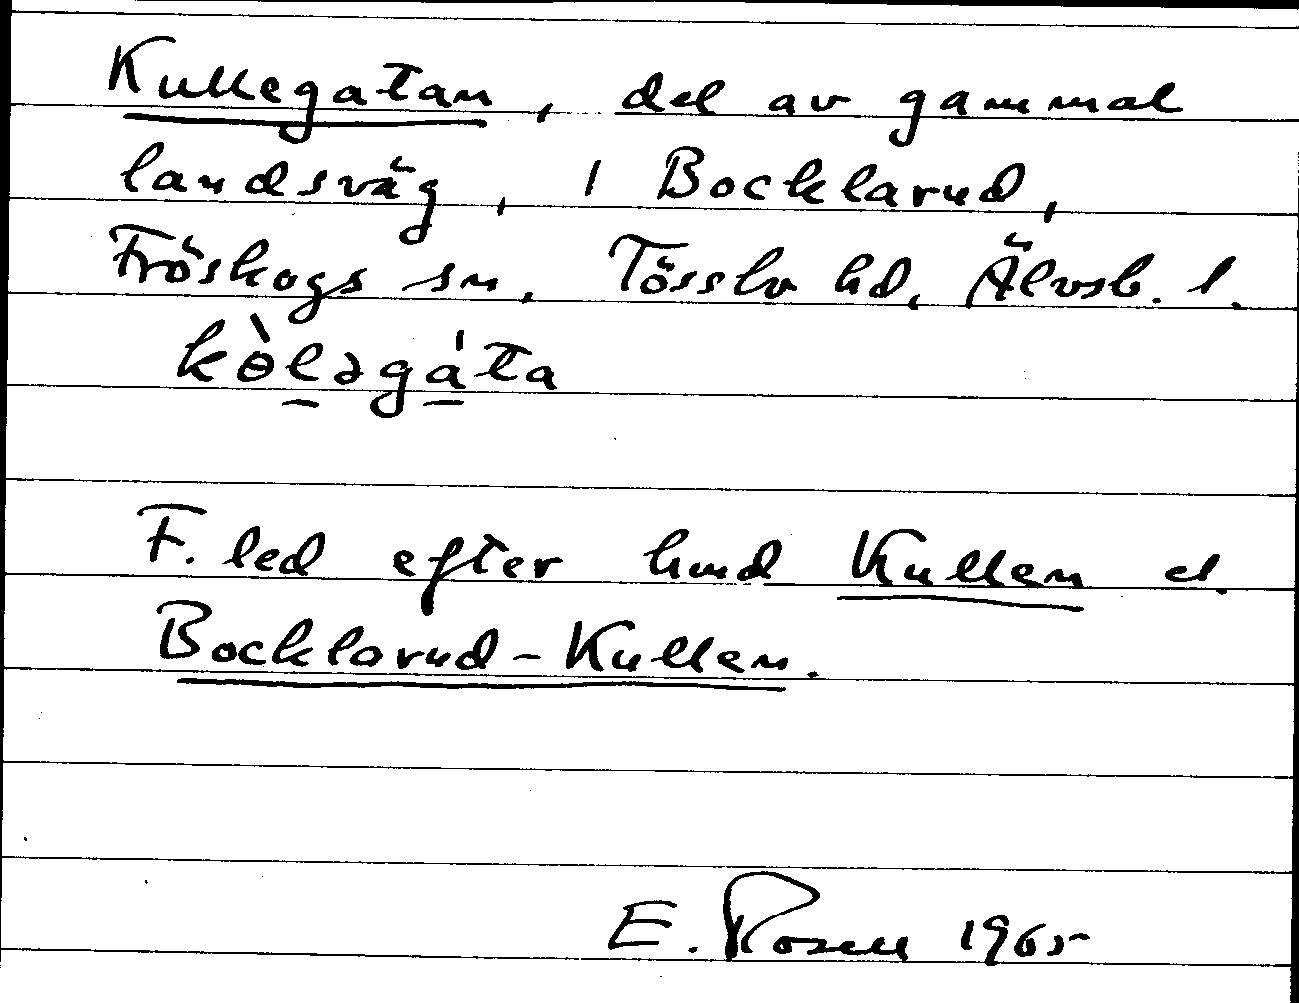 Kullegatan, del av gammal
landsväg, i Bocklarud,
Fröskogs sn, Tössbo hd, Älvsb. l.
kὸ̀lǝgáta
F. led efter hmd Kullen el.
Bocklarud-Kullen.
E. Rosell 1965